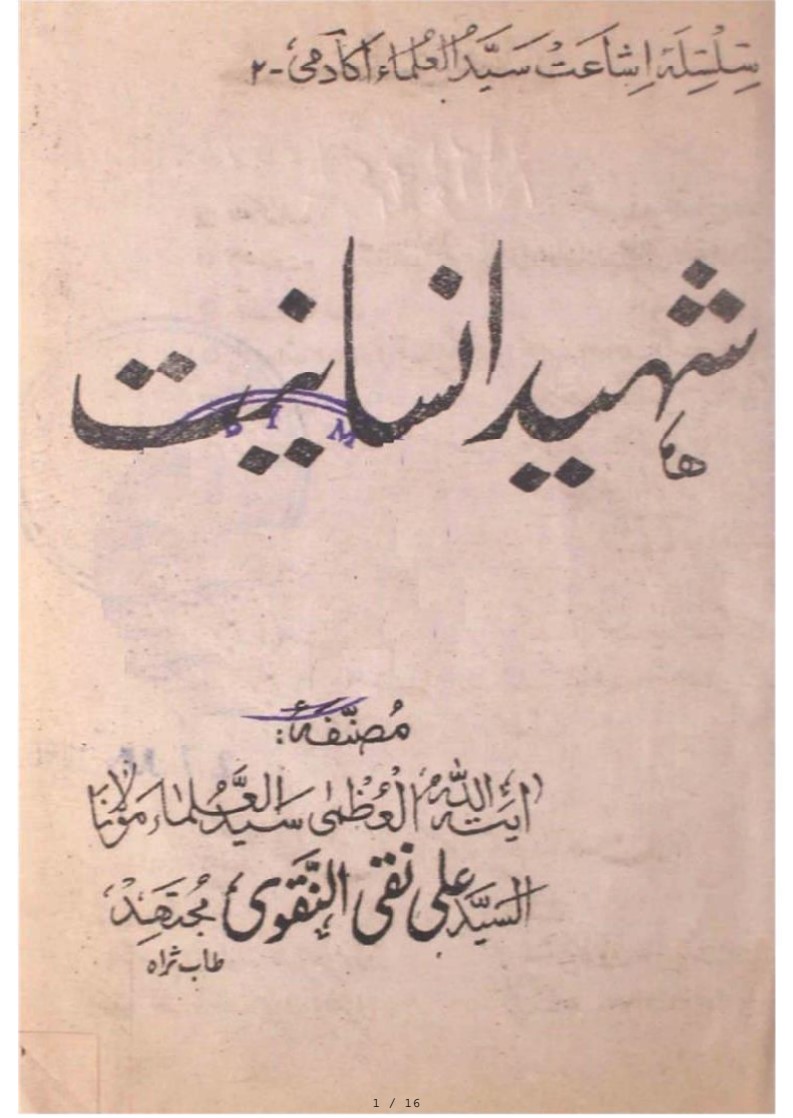 سِلْسِلَۂ اِشَاعَتْ سَیَّدُ الْعُلَمَاء اَکَادَمِی - ۲
شہید انسانیت
مُصَنَّفَۂ:
اٰیَتہ اللّٰہُ الْعُظْمٰی سَیَّدُ الْعُلَمَاء مَوْلَانَا
السیَّد علی نقی النَّقَوِی مُجْتَھِدْ
طاب ثراہ
1 / 16